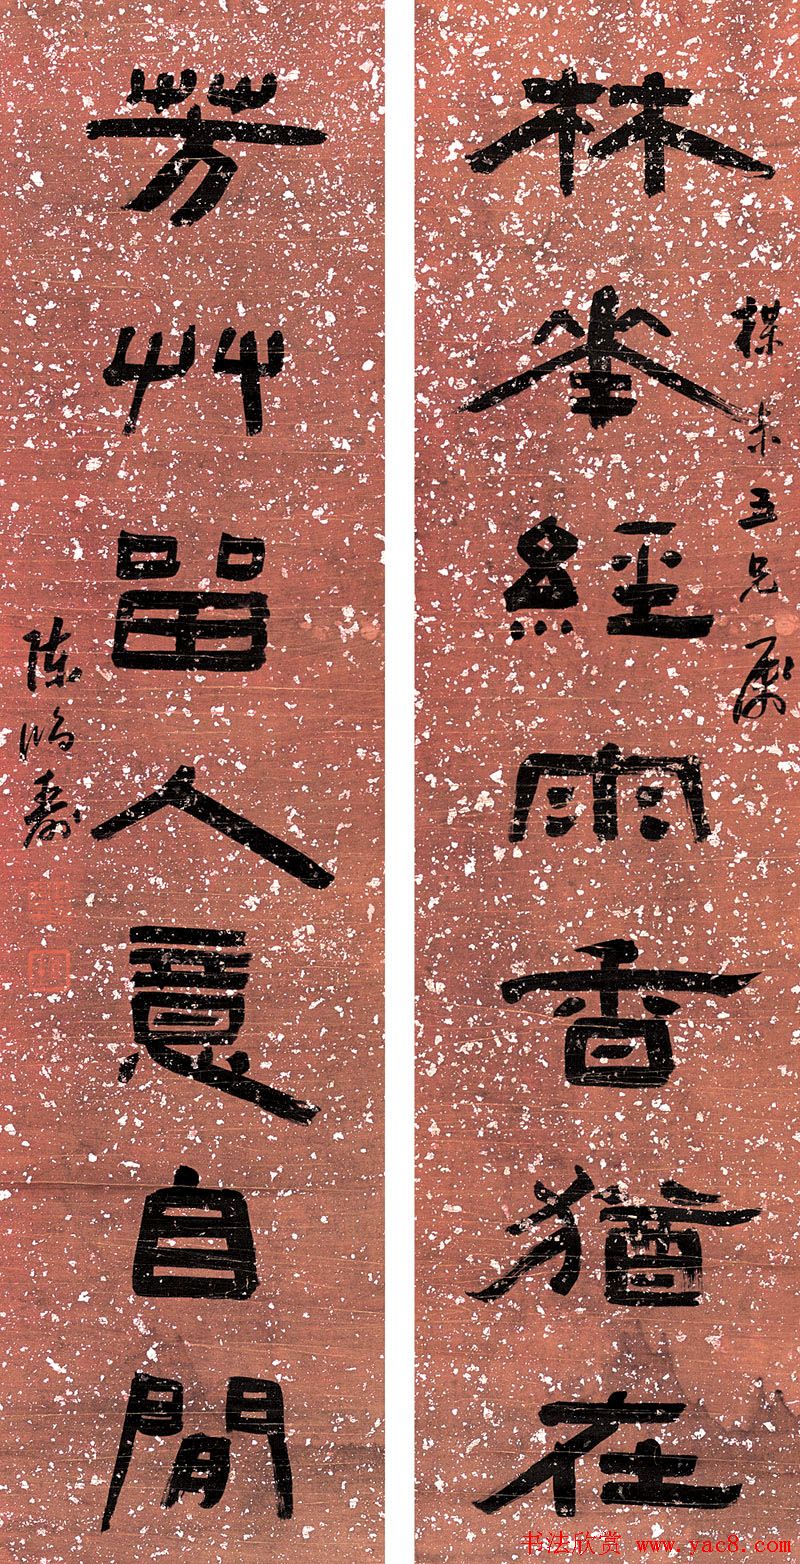 林華經雨香猶在
五兄屬
芳艸留人意自閒
陳鴻壽
书法欣赏 www.yac8.com